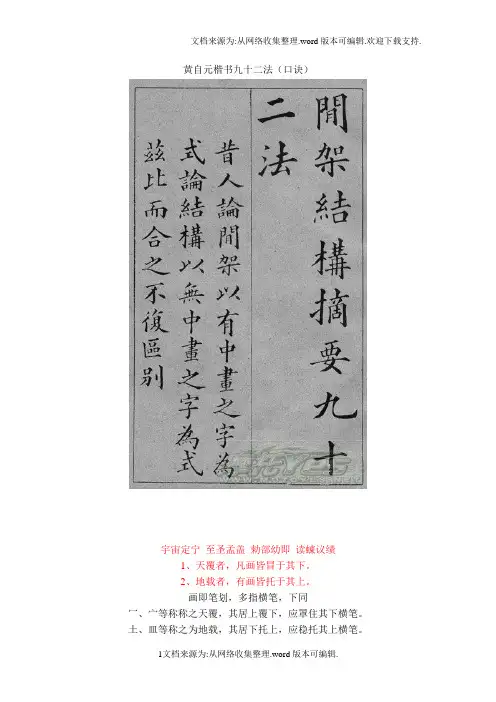 文档来源为:从网络收集整理.word 版本可编辑.欢迎下载支持.
黄自元楷书九十二法（口诀）
間架結構摘要九十
二法
昔人論間架以有中畫之字為
式論結構以無中畫之字為式
茲比而合之不復區别
宇宙定宁 至圣孟盖 勅部幼即 读竦议绩
1、天覆者，凡画皆冒于其下。
2、地载者，有画皆托于其上。
画即笔划，多指横笔，下同
冖、宀等称称之天覆，其居上覆下，应罩住其下横笔。
土、皿等称之为地载，其居下托上，应稳托其上横笔。
1文档来源为:从网络收集整理.word 版本可编辑.